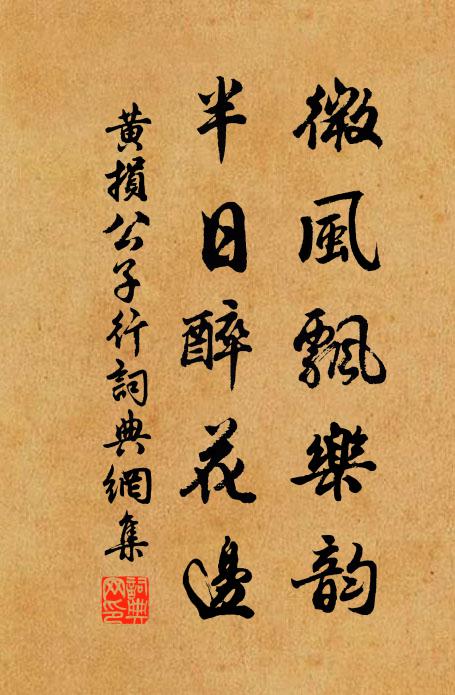 微風飄樂韵
半日醉花邊
黃損公子行詞典網集
詞典
网印